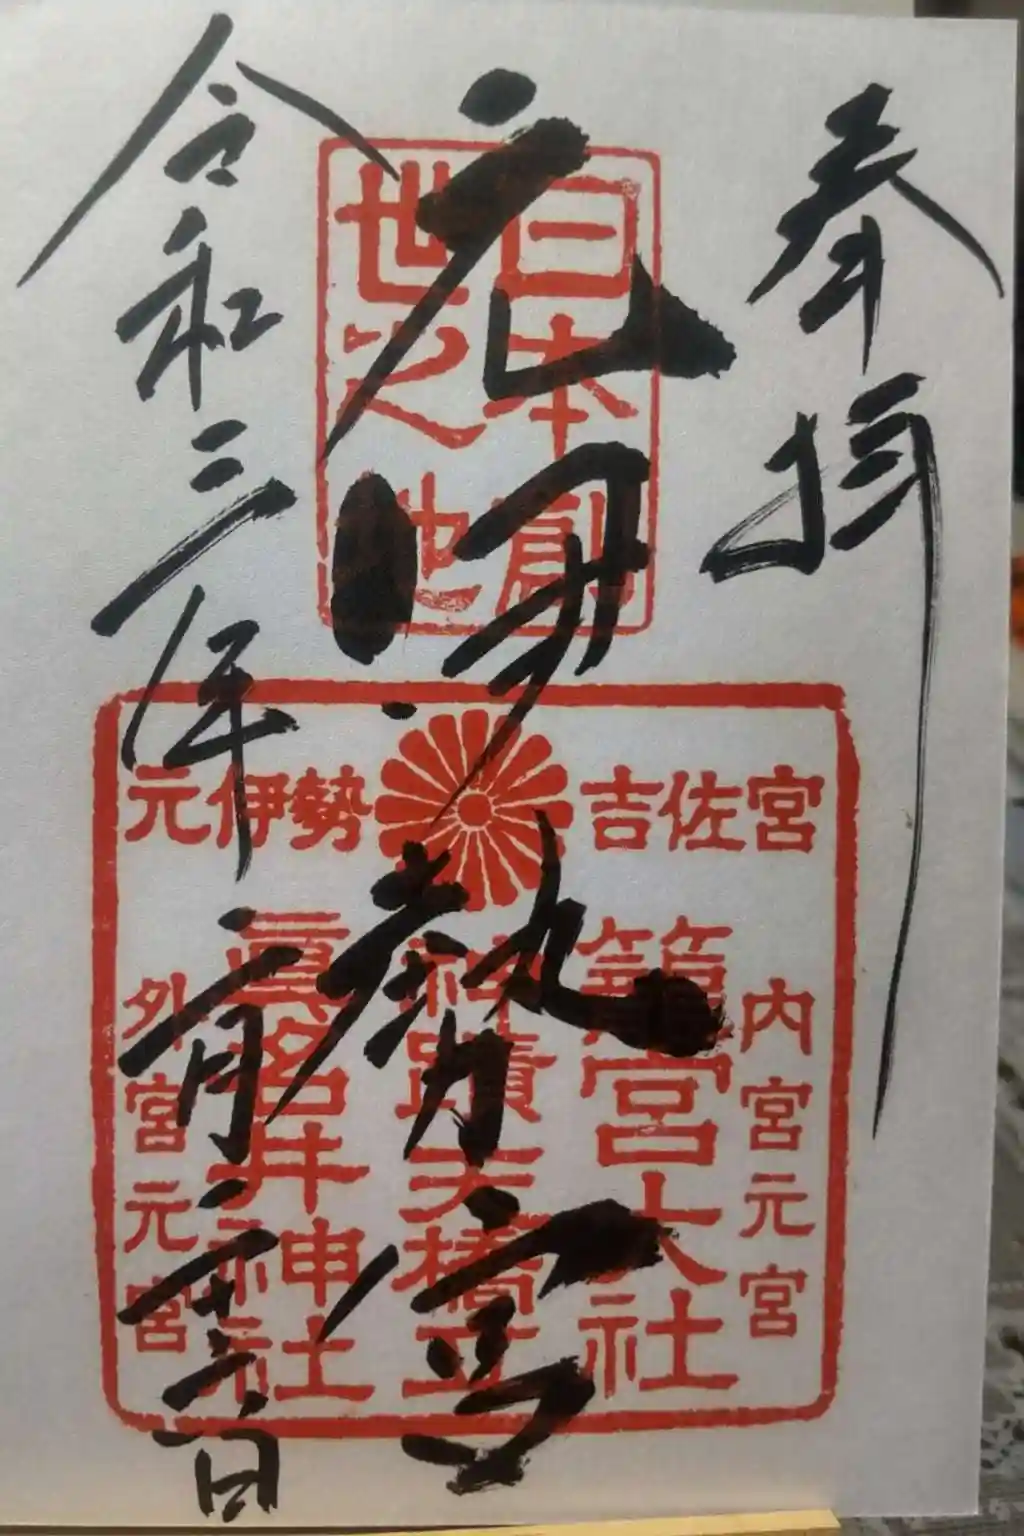 奉拝
日本創
世之地
元伊勢宮
元伊勢 吉佐宮
内宮元宮
籠宮大社
神蹟天橋立
眞名井神社
外宮元宮
令和三年二月